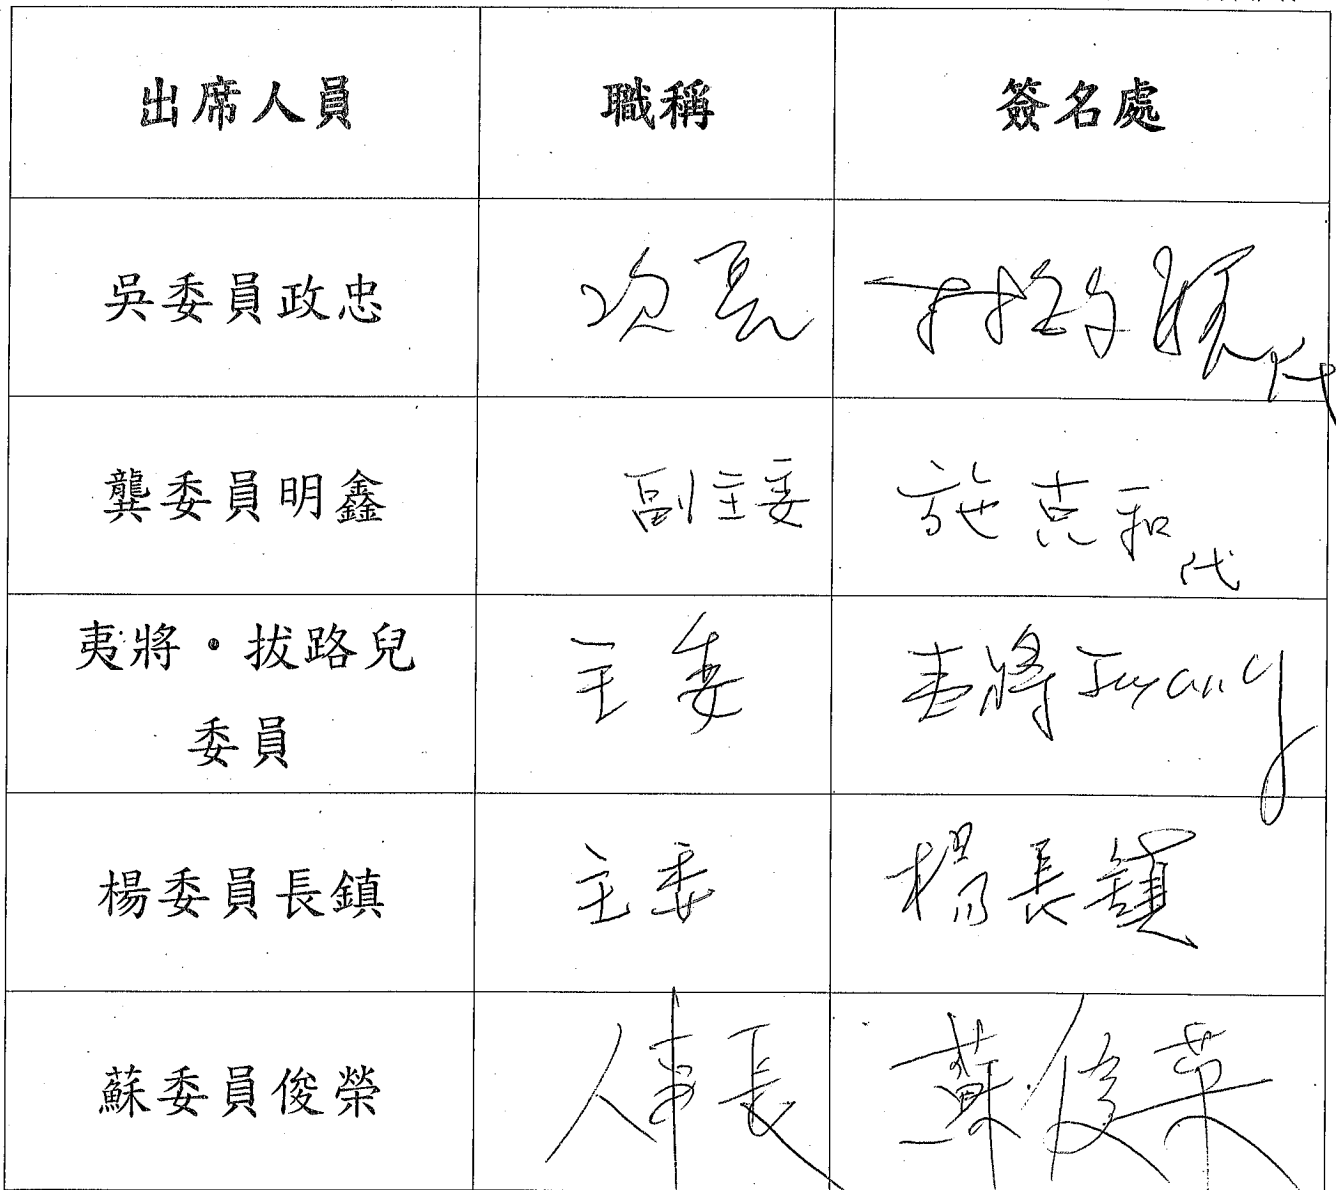 出席人員 職稱 簽名處
吳委員政忠 次長 林敏聰代
龔委員明鑫 副主委 施克和代
夷將•拔路兒 主委 夷將Icyang
委員
楊委員長鎮 主委 楊長鎮
蘇委員俊榮 人事長 蘇俊荣